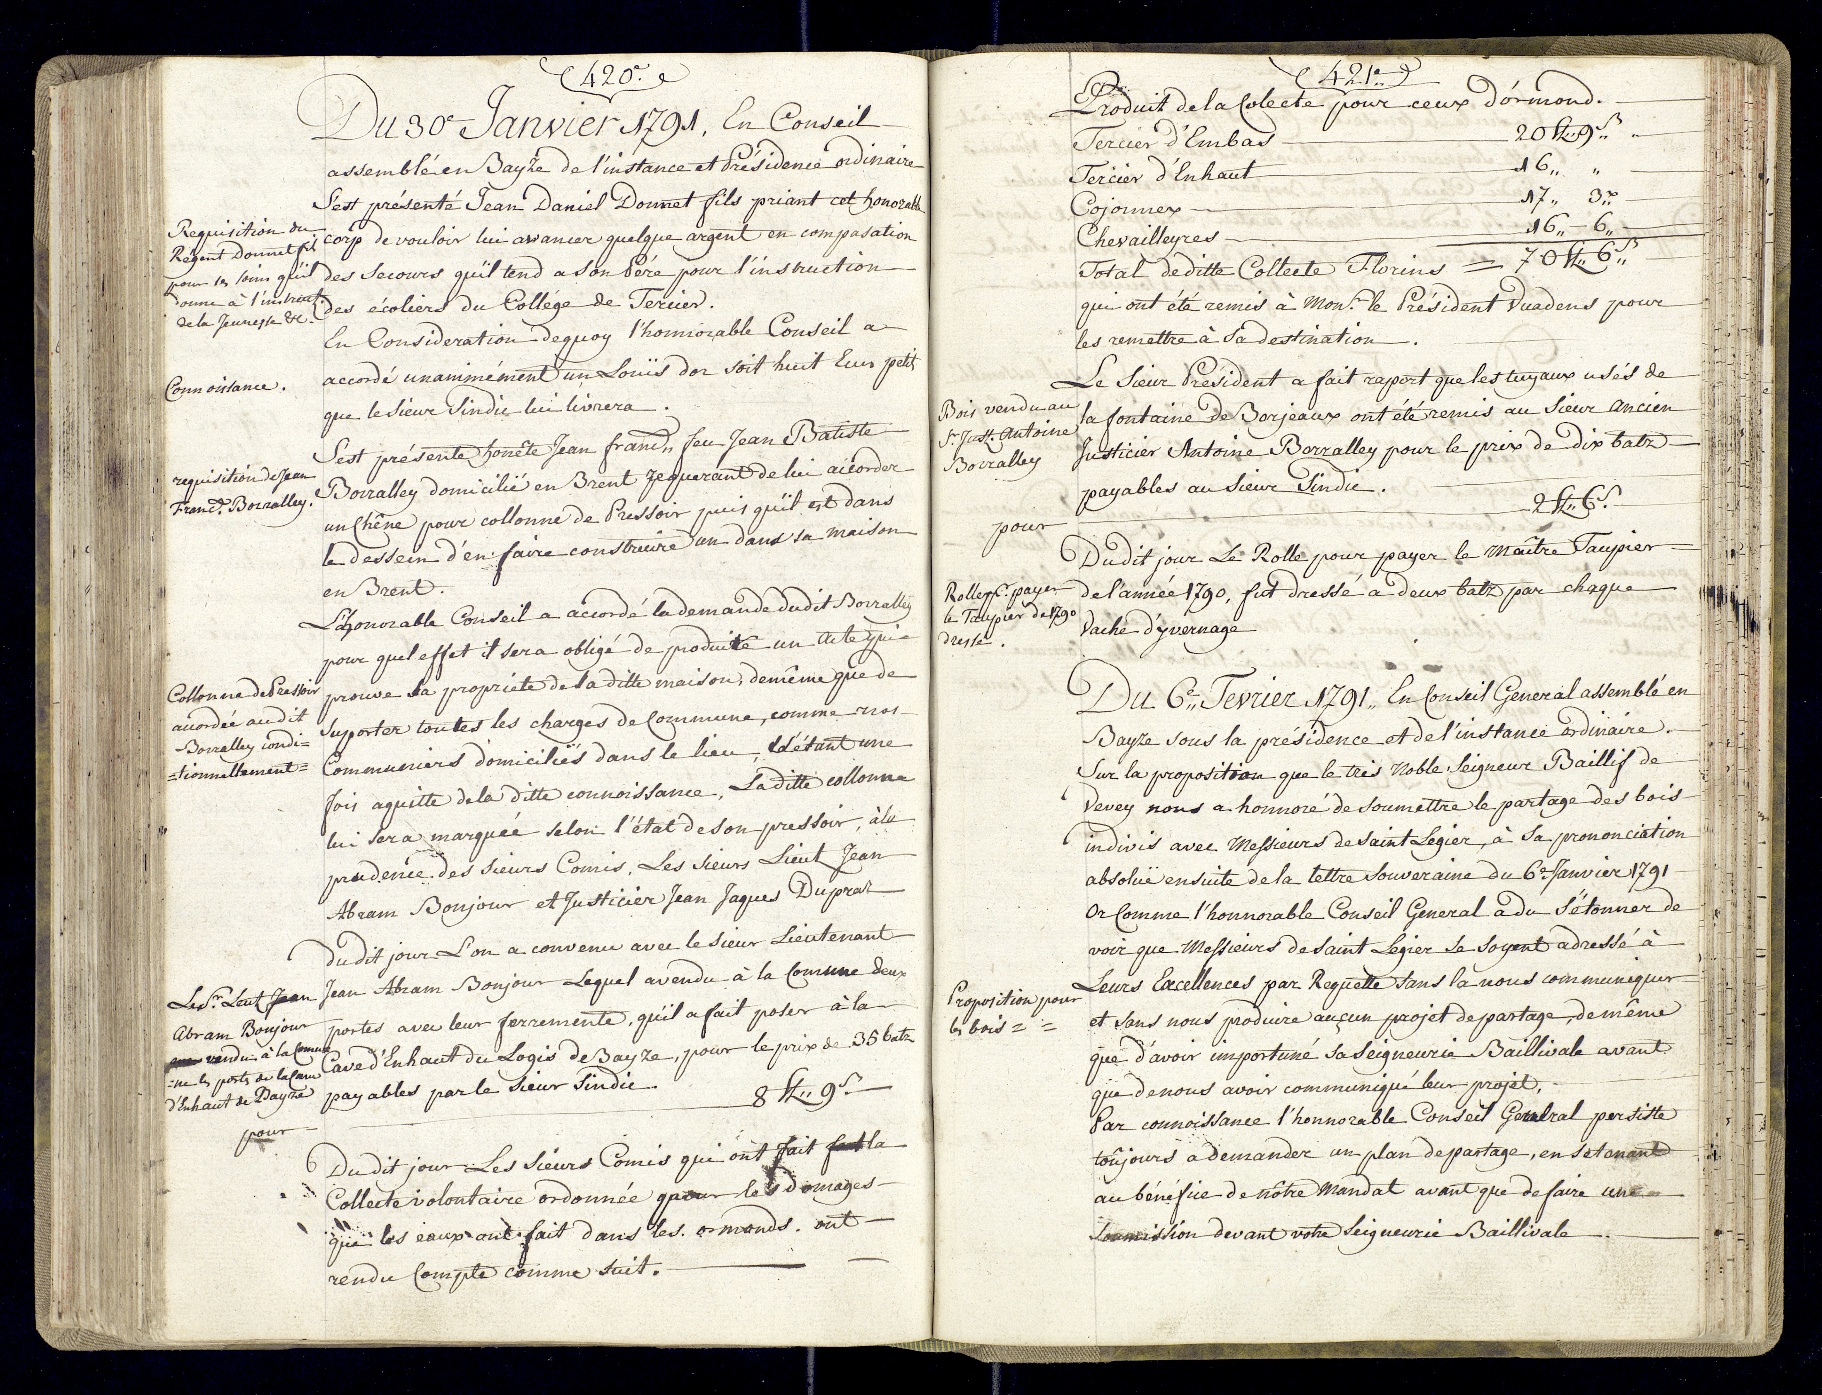 420e.
Du 30e Janvier 1791, En Conseil
assemblé en Bayze de l'instance et Présidence ordinaire
S'est présenté Jean Daniel Donnet fils priant cet honorable
corp de vouloir lui avancer quelque argent en compasation
des Secours qu'il tend a Son Pére pour l'instruction
des écoliers du Collége de Tercier.
En Consideration dequoy l'honnorable Conseil a
accordé unanimément un Louïs dor soit huit Ecus petit
que le Sieur Sindic lui livrera.
S'est présenté honête Jean franc.s feu Jean Batiste
Borralley domicilié en Brent requerant de lui accorder
un Chêne pour collonne de Pressoir puis qu'il est dans
le dessein d'en faire construire un dans sa maison
en Brent.
L'honorable Conseil a accordé la demande dudit Borralley
pour quel effet il sera obligé de produire un Acte qui
prouve la propriete de la ditte maison, de même que de
Suporter toutes les charges de Commune, comme nos
Communiers domiciliés dans le lieu, S'étant une
fois aquitté de la ditte connoissance, La ditte collonne
lui sera marquée selon l'état de son pressoir, à la
prudence des Sieurs Comis, Les Sieurs Lieut Jean
Abram Bonjour et Justicier Jean Jaques Dupraz
Dudit jour L'on a convenu avec le Sieur Lieutenant
Jean Abram Bonjour Lequel a vendu à la Comune deux
portes avec leur ferremente, qu'il a fait poser à la
Cave d'Enhaut du Logis de Bayze, pour le prix de 35 batz
payables par le Sieur Sindic 8 fl„ 9 s.
Dudit jour Les Sieurs Comis qui ont fait la
Collecte volontaire ordonnée pour les domages
que les eaux ont fait dans les ormonds. ont
rendu Compte comme suit.
Requisition du
Régent Donnet fil
pour les soins qu'il
donne à l'instruct.
de la Jeunesse &c.
Connoissance.
requisition de Jean
Franc.s Borralley.
Collonne de Pressoir
accordée audit
Borralley condi=
=tionnellement=
Le Sr. Leut Jean
Abram Bonjour
vendu à la Comu
=ne les ports de la Cave
d'Enhaut de Bayze
pour
421e.
Produit de la Colecte pour ceux d'ormond.
Tercier d'Embas 20 fl„ 9 s„
Tercier d'Enhaut 16„ „
Cojonnex 17„ 3„
Chevailleyres 16„ 6„
Total deditte Collecte Florins = 70 fl„ 6 s„
qui ont été remis à Monsr. le Président Vuadens pour
les remettre à Sa destination.
Le Sieur Président a fait raport que les tuyaux usés de
la fontaine de Borjeaux ont été remis au Sieur ancien
Justicier Antoine Borralley pour le prix de dix batz
payables au Sieur Sindic. 2 fl„ 6 s.
Dudit jour Le Rolle pour payer le Maître Taupier
de l'année 1790, fut dressé a deux batz par chaque
Vache d'yvernage
Du 6e Fevrier 1791„ En Conseil General assemblé en
Bayze sous la présidence et de l'instance ordinaire.
Sur la proposition que le très Noble Seigneur Baillif de
Vevey nous a honnoré de soumettre le partage des bois
indivis avec Messieurs de Saint Legier, à Sa prononciation
absolüe ensuite de la lettre Souveraine du 6e Janvier 1791
Or Comme l'honnorable Conseil General a du S'étonner de
voir que Messieurs de Saint Legier Se soyent adressé à
Leurs Excellences par Requette Sans la nous communiquer
et Sans nous produire auçun projet de partage, de même
que d'avoir importuné Sa Seigneurie Baillivale avant
que de nous avoir communiqué leur projet,
Par connoissance l'honnorable Conseil General persiste
toûjours a demander un plan de partage, en se tenant
au bénéfice de nôtre Mandat avant que de faire une
Soumission devant votre Seigneurie Baillivale.
Bois vendu au
Sr. Just. Antoine
Borralley
pour
Rolle pr. payer
le Taupier de 1790
dressé.
Proposition pour
les bois = =